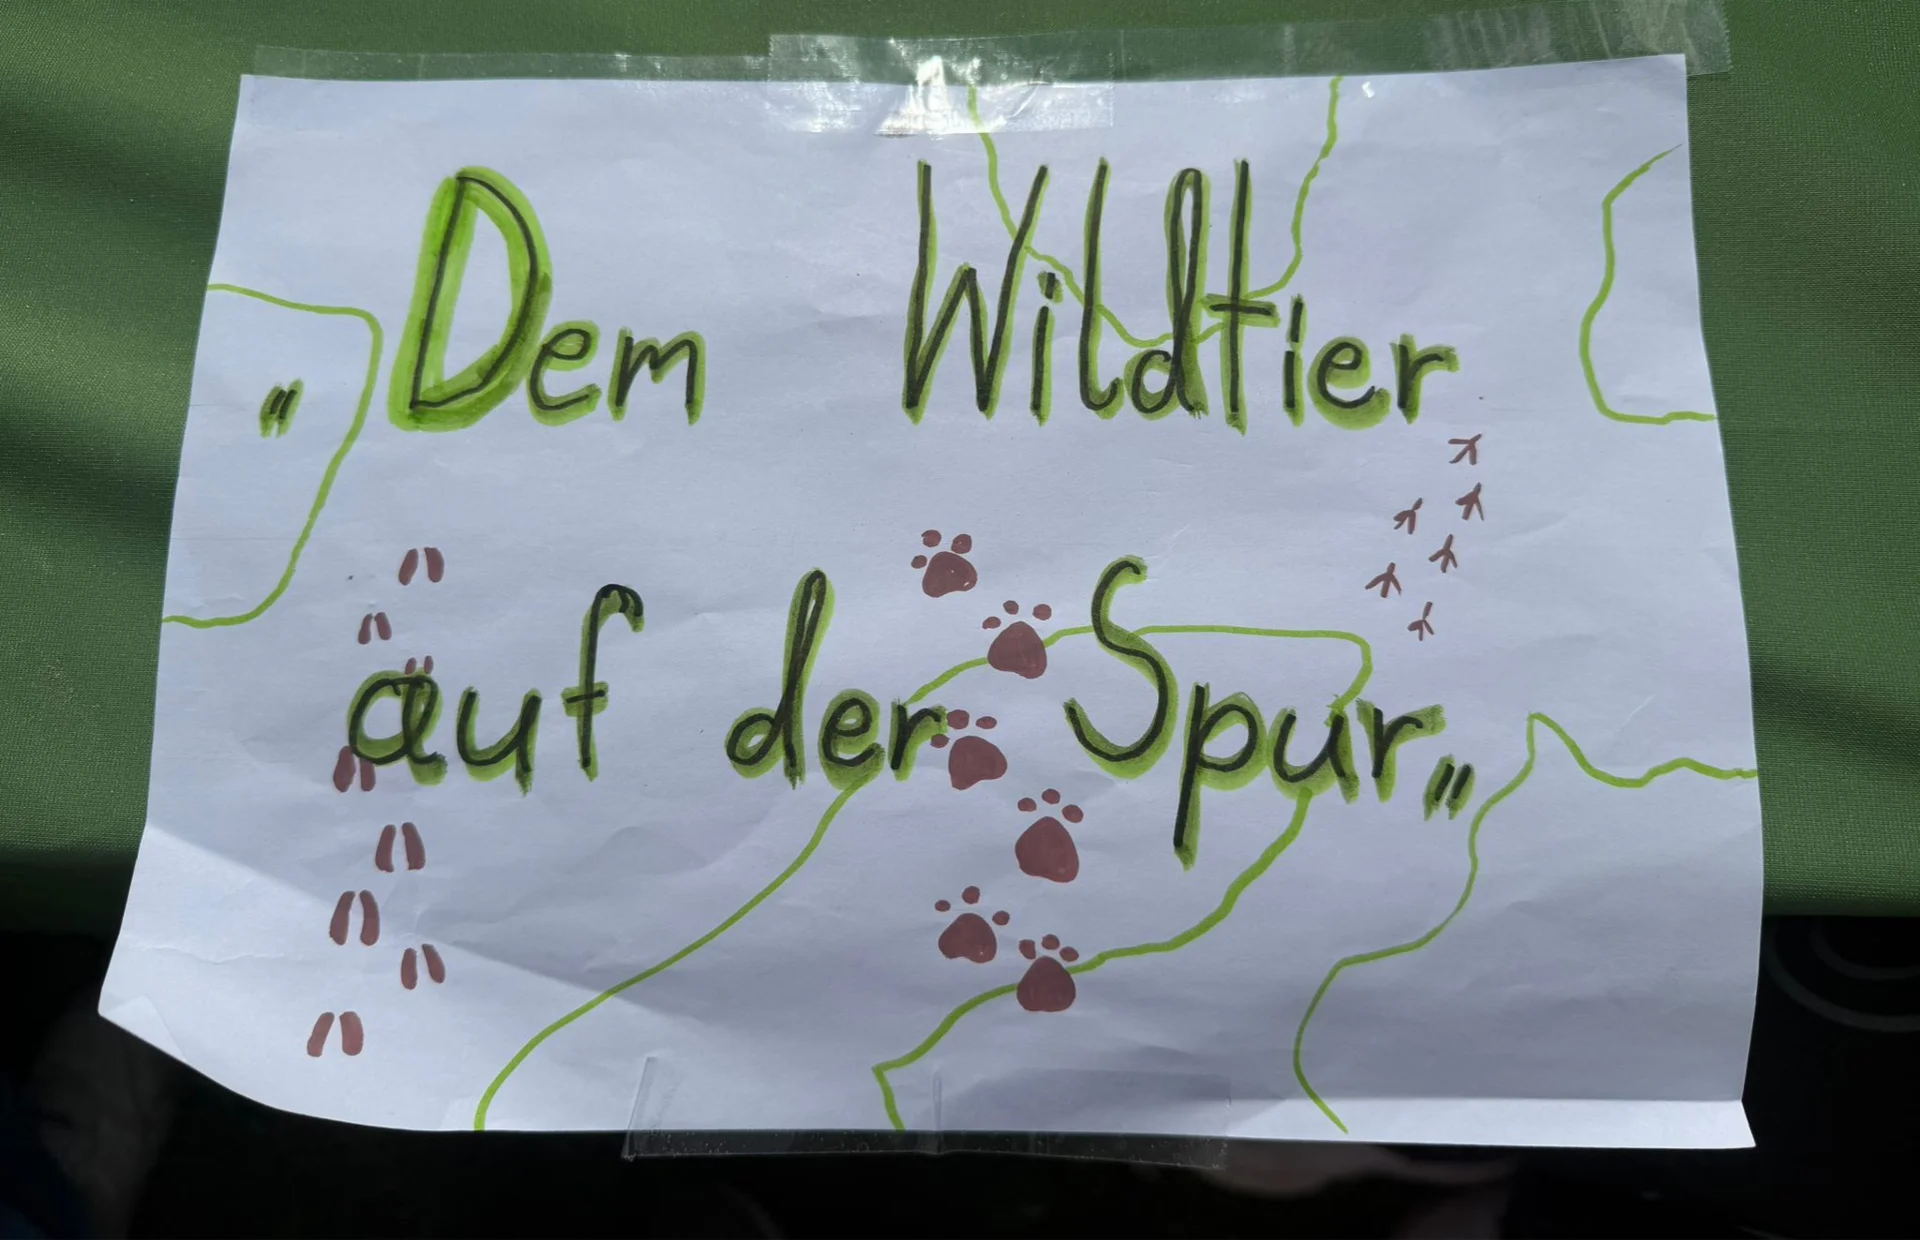 „Dem Wildtier
auf der Spur„